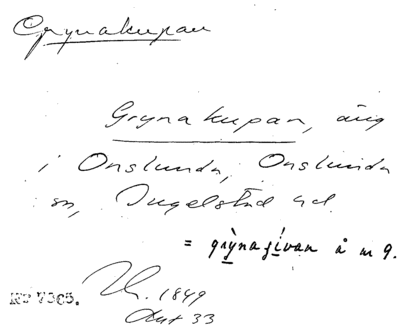 Grynakupan
Grynakupan, äng
i Onslunda, Onslunda
sn, Ingelstad hd.
= grỳnaʃívan å m 9.
No 7365. 1849
Akt 33